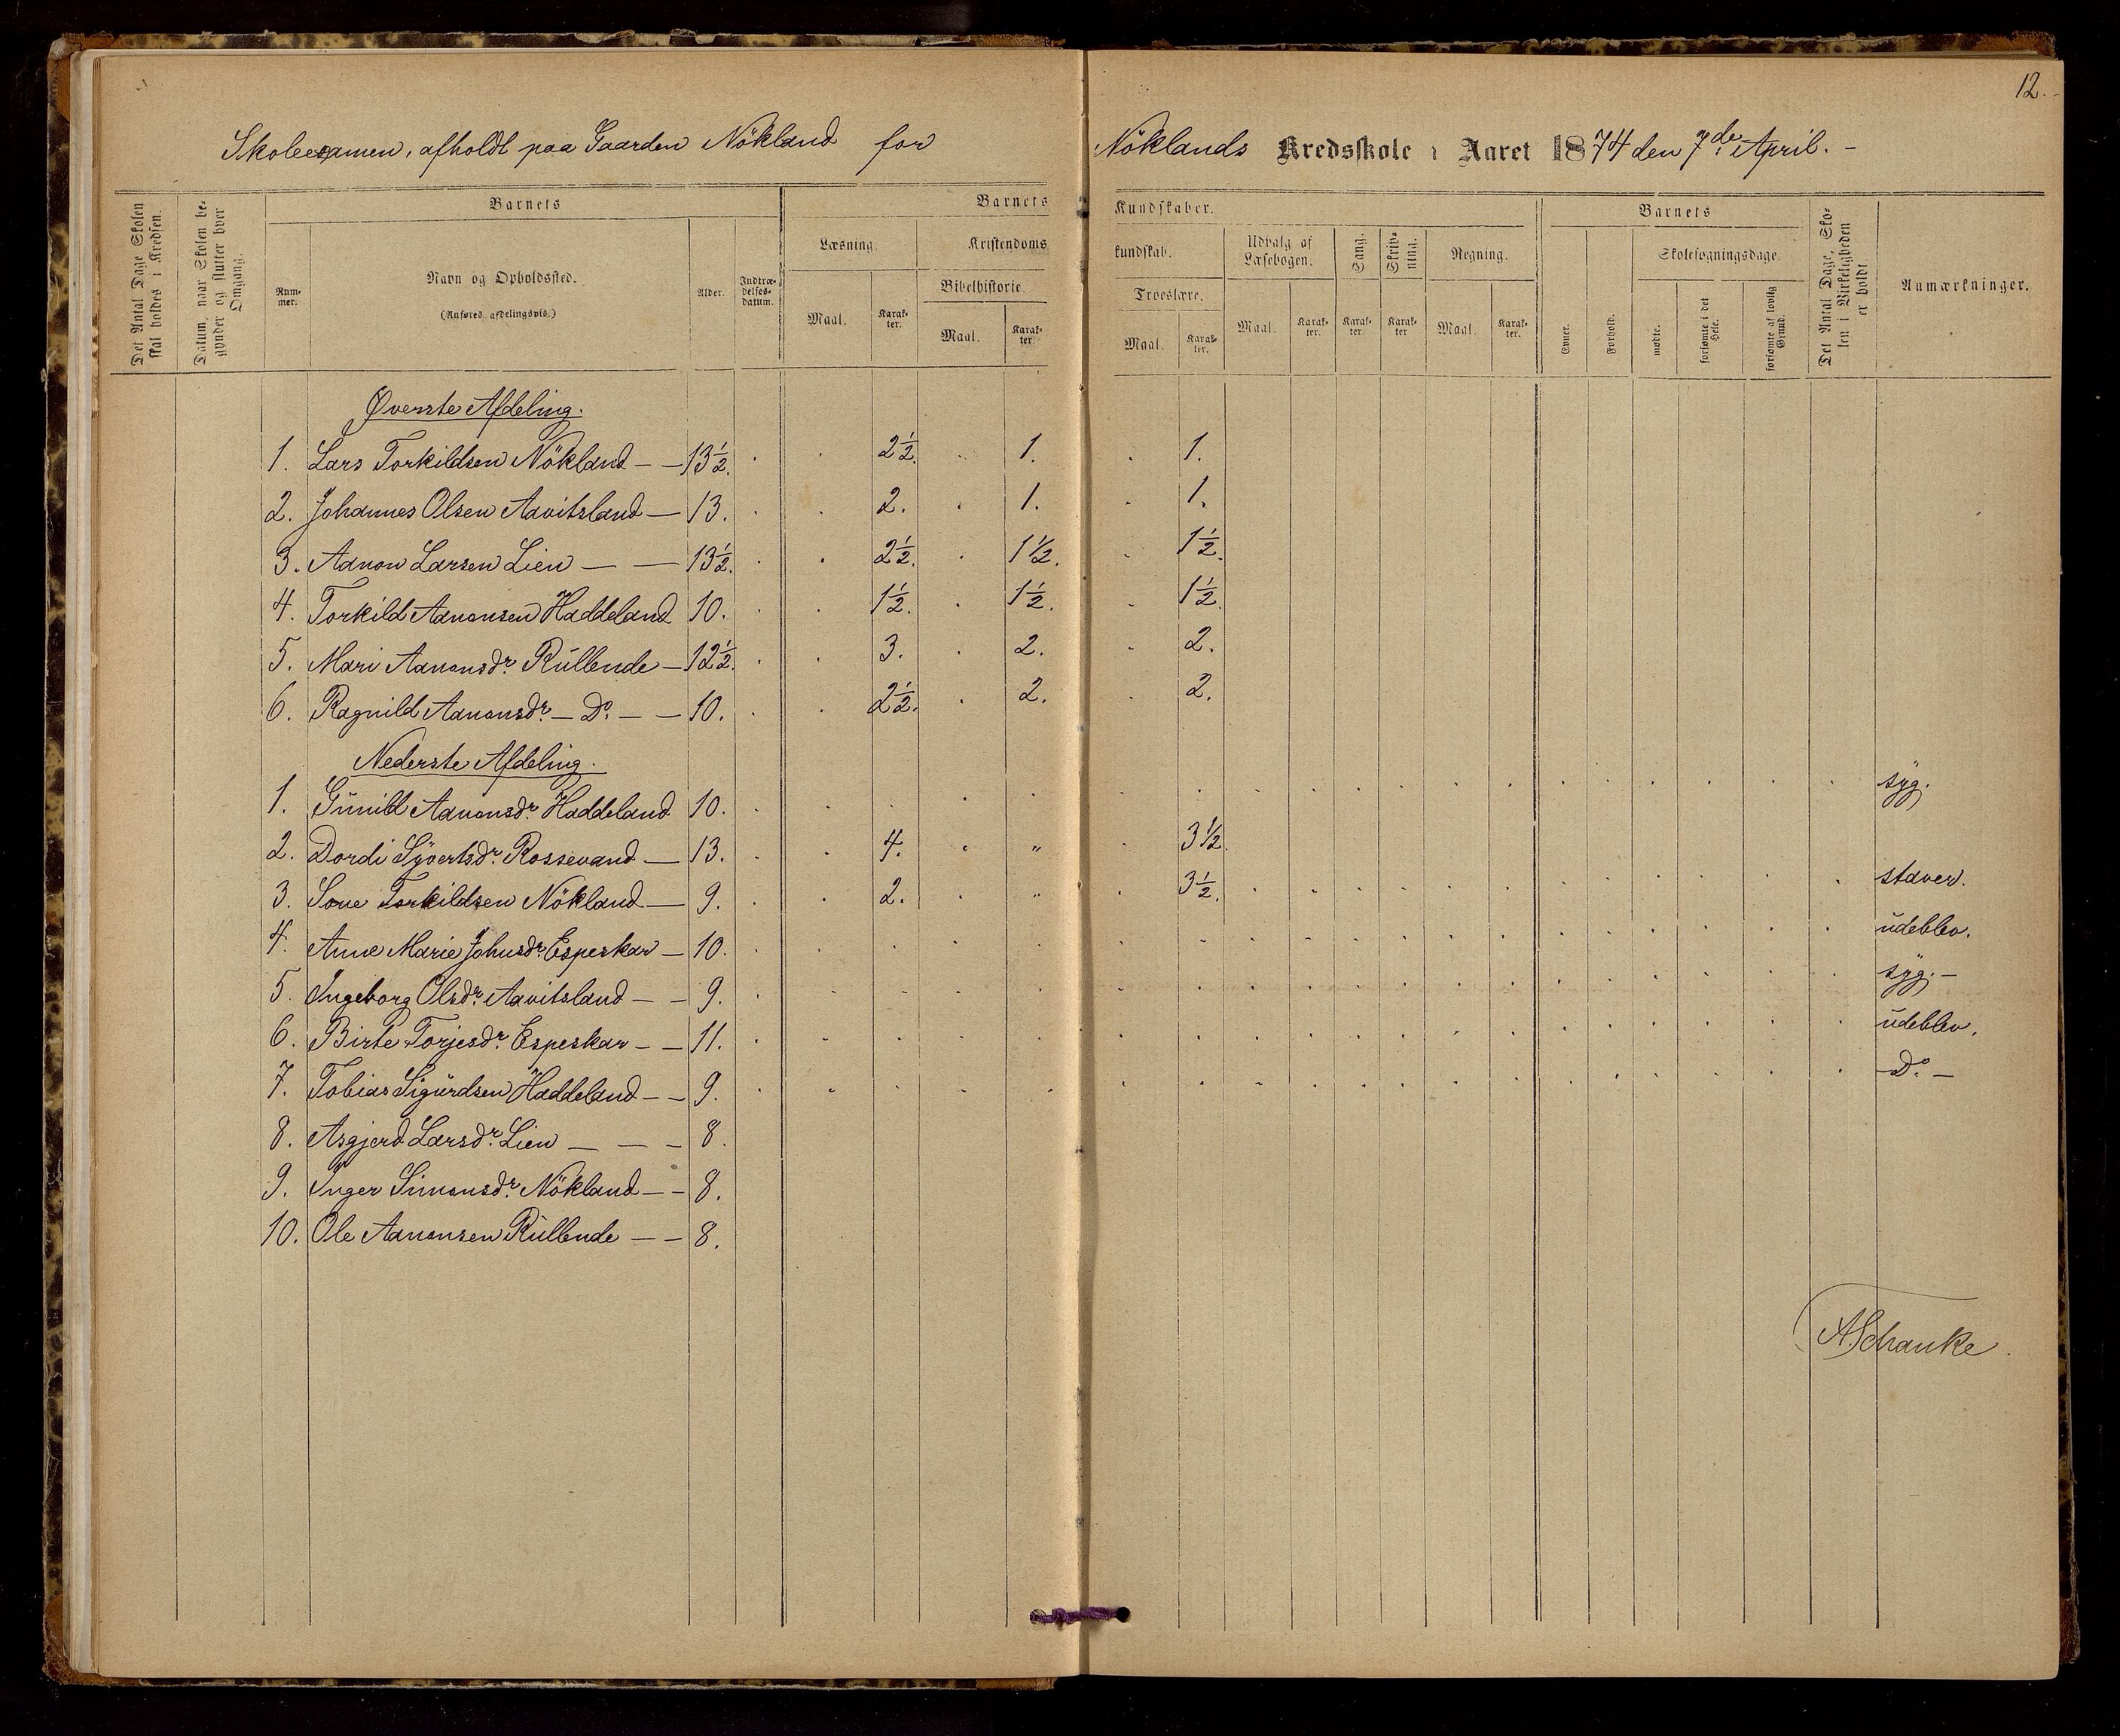 12.
Skoleexamen, afholdt paa Gaarden Nökland for Nöklands Kredsskole i Aaret 1874 den 7de April. –
Det Antal Dage Skolen skal holdes i Kredsen.
Datum, naar Skolen begynder og slutter hver Omgang.
Barnets
Nummer.
Navn og Opholdssted.
(Anføres afdelingsvis.)
Alder.
Indtrædelsesdatum.
Barnets Kundskaber.
Læsning.
Maal.
Karakter.
Kristendomskundskab.
Bibelhistorie.
Maal.
Karakter.
Troeslære.
Maal.
Karakter.
Udvalg af Læsebogen.
Maal.
Karakter.
Sang.
Karakter.
Skrivning.
Karakter
Regning.
Maal.
Karakter.
Barnets
Evner.
Forhold.
Skolesøgningsdage.
mødte.
forsømte i det Hele.
forsømte af lovlig Grund.
Det Antal Dage, Skolen i Virkeligheden er holdt.
Anmærkninger.
Øverste Afdeling.
1. Lars Torkildsen Nökland – – 13½. 2½. 1. 1.
2. Johannes Olsen Aavitsland – 13. 2. 1. 1.
3. Aanon Larsen Lien – – 13½. 2½. 1½. 1½.
4. Torkild Aanonsen Haddeland 10. 1½. 1½. 1½.
5. Mari Aanonsdr. Rüllende – 12½. 3. 2. 2.
6. Ragnild Aanonsdr. – Do. – – 10. 2½. 2. 2.
Nederste Afdeling.
1. Günild Aanonsdr. Haddeland 10. syg.
2. Dordi Syvertsdr. Rossevand – 13. 4. " 3½
3. Sone Torkildsen Nökland – 9. 2. " 3½. staver.
4. Anne Marie Johnsdr. Espeskar – 10. üdeblev.
5. Ingeborg Olsdr. Aavitsland – – 9. syg. –
6. Birte Torjesdr. Espeskar – – 11. üdeblev.
7. Tobias Sigürdsen Haddeland – – 9. Do. –
8. Asgjerd Larsdr. Lien – – – 8.
9. Inger Simonsdr. Nökland – – 8.
10. Ole Aanonsen Rüllende – – 8.
A. Schanke.